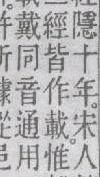 經隱十年宋人
三經皆作載惟
載戴同音通用
許所據從邑